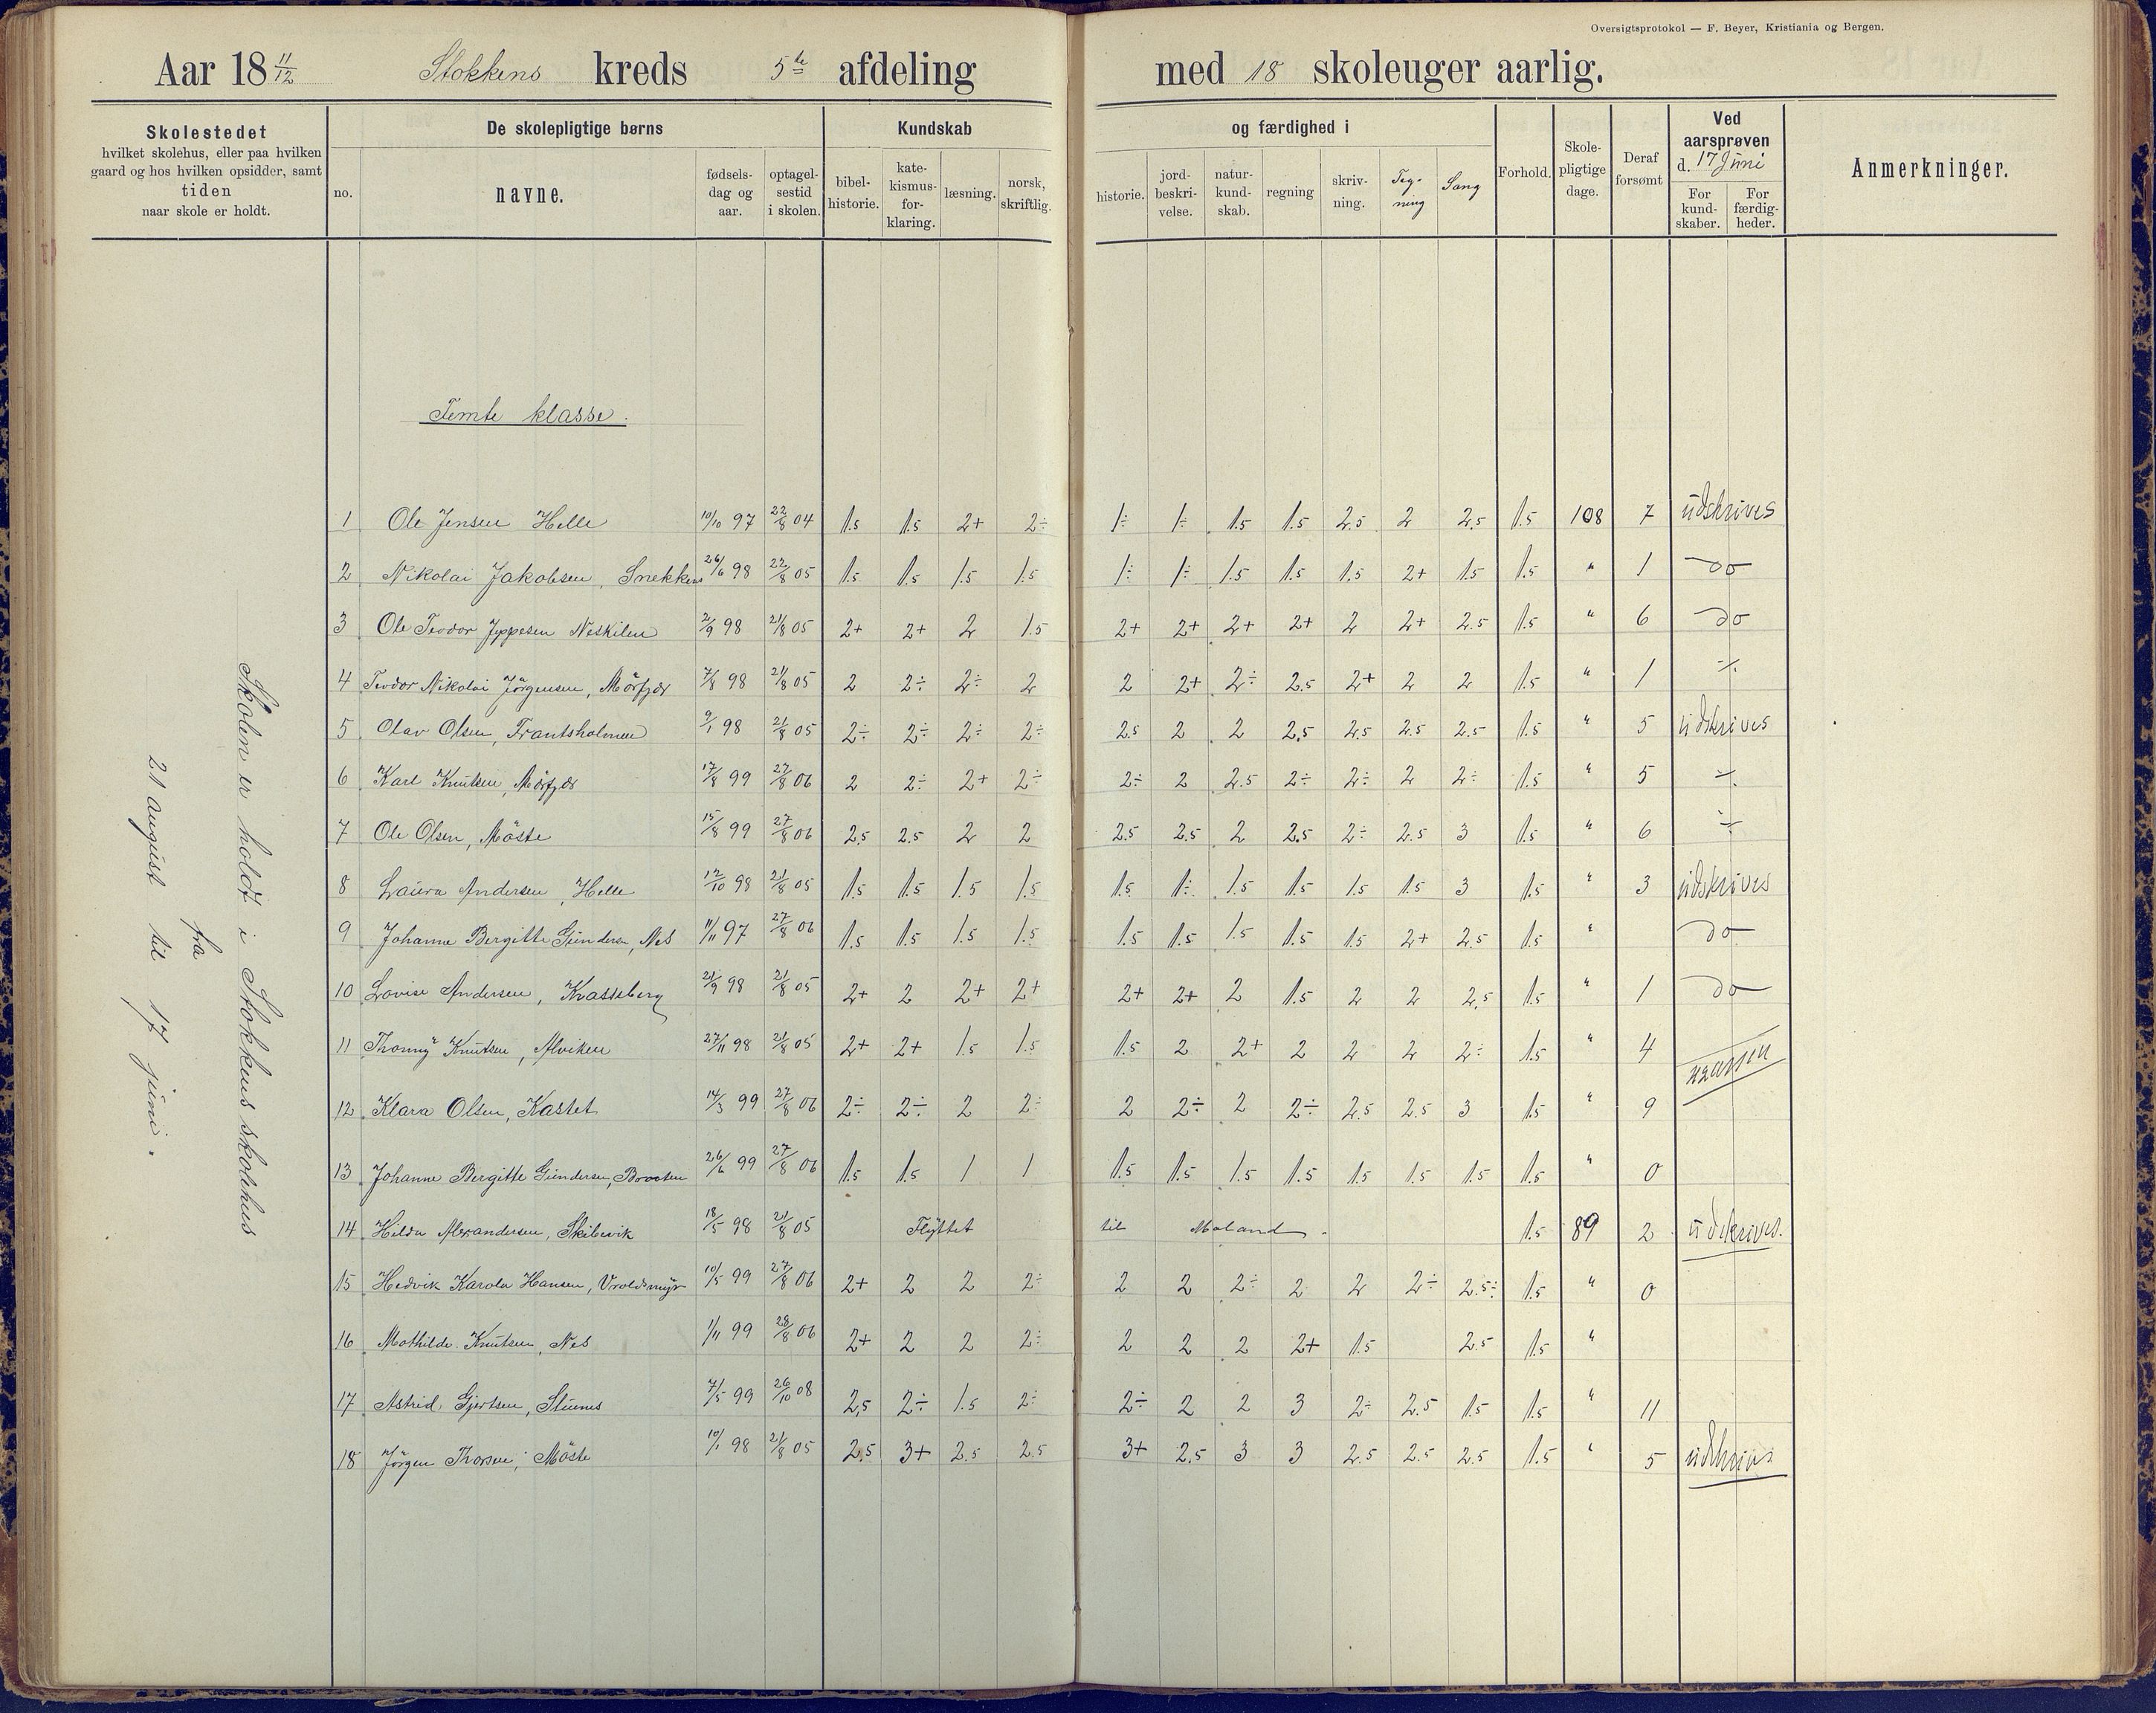 Oversigtsprotokol — F. Beyer, Kristiania og Bergen.
Aar 18 11/12 Stokkens kreds 5te afdeling med 18 skoleuger aarlig.
Skolestedet
hvilket skolehus, eller paa hvilken
gaard og hos hvilken opsidder, samt
tiden
naar skole er holdt.
De skolepligtige børns
no. navne. fødsels-dag og aar. optagel-sestid i skolen.
Kundskab og færdighed i
bibel-historie. kate-kismus-for-klaring. læsning. norsk, skriftlig. historie. jord-beskri-velse. natur-kund-skab. regning skriv-ning. Teg-ning Sang
Forhold. Skole-pligtige dage. Deraf forsømt
Ved aarsprøven d. 17 Juni
For kund-skaber. For færdig-heder.
Anmerkninger.
Skolen er holdt i Stokkens skolehus
fra
21 august til 17 juni.
Femte klasse.
1 Ole Jensen Helle 10/10 97 22/8 04 1.5 1.5 2+ 2÷ 1÷ 1÷ 1.5 1.5 2.5 2 2.5 1.5 108 7 udskrives
2 Nikolai Jakobsen, Snekkens 26/6 98 22/8 05 1.5 1.5 1.5 1.5 1÷ 1÷ 1.5 1.5 1.5 2+ 1.5 1.5 " 1 do
3 Ole Teodor Jeppesen Neskilen 2/9 98 21/8 05 2+ 2+ 2 1.5 2+ 2+ 2+ 2+ 2 2+ 2.5 1.5 " 6 do
4 Teodor Nikolai Jörgensen, Mörfjær 7/8 98 21/8 05 2 2÷ 2÷ 2 2 2+ 2÷ 2.5 2+ 2 2 1.5 " 1 ÷
5 Olav Olsen, Frantsholmen 9/1 98 21/8 05 2÷ 2÷ 2÷ 2÷ 2.5 2 2 2.5 2.5 2.5 2.5 1.5 " 5 udskrives
6 Karl Knutsen, Mörfjær 17/8 99 27/8 06 2 2÷ 2+ 2÷ 2÷ 2 2.5 2÷ 2÷ 2 2÷ 1.5 " 5 ÷
7 Ole Olsen, Möste 15/8 99 27/8 06 2.5 2.5 2 2 2.5 2.5 2 2.5 2÷ 2.5 3 1.5 " 6 ÷
8 Laura Andersen, Helle 12/10 98 21/8 05 1.5 1.5 1.5 1.5 1.5 1÷ 1.5 1.5 1.5 1.5 3 1.5 " 3 udskrives
9 Johanne Bergitte Gundersen, Nes 11/11 97 27/8 06 1.5 1.5 1.5 1.5 1.5 1.5 1.5 1.5 1.5 2+ 2.5 1.5 " do
10 Lovise Andersen, Kvasseberg 21/9 98 21/8 05 2+ 2 2+ 2+ 2+ 2+ 2 1.5 2 2 2.5 1.5 " 1 do
11 Thonny Knutsen, Alviken 27/11 98 21/8 05 2+ 2+ 1.5 1.5 1.5 2 2+ 2 2 2 2÷ 1.5 " 4
12 Klara Olsen, Kastet 14/3 99 27/8 06 2÷ 2÷ 2 2÷ 2 2÷ 2 2÷ 2.5 2.5 3 1.5 " 9
13 Johanne Bergitte Gundersen, Braaten 26/6 99 27/8 06 1.5 1.5 1 1 1.5 1.5 1.5 1.5 1.5 1.5 1.5 1.5 " 0
14 Hilda Alexandersen, Skibevik 18/5 98 21/8 05 Flyttet til Moland. 1.5 89 2 udskrives.
15 Hedvik Karola Hansen, Vroldsmyr 10/5 99 27/8 06 2+ 2 2 2÷ 2 2 2÷ 2 2 2÷ 2.5÷ 1.5 " 0
16 Mathilde Knutsen, Nes 1/11 99 28/8 06 2+ 2 2 2÷ 2 2 2 2+ 1.5 2.5 1.5 "
17 Astrid Gjertsen, 7/5 99 26/10 08 2,5 2÷ 1.5 2÷ 2÷ 2 2 3 2÷ 2.5 1.5 1.5 " 11
18 Jörgen Thorsen, Möste 10/1 98 21/8 05 2.5 3+ 2.5 2.5 3+ 2.5 3 3 2.5 2.5 2.5 1.5 " 5 udskrives